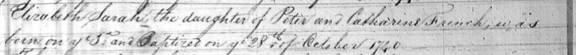 Elizabeth Sarah, the daughter of Peter and Catharine French, was
born on ye 5th and Baptized on ye 28th of October 1740